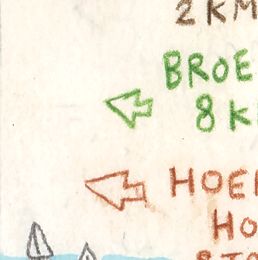 2 KM
BROE
8 K
HOE
HO